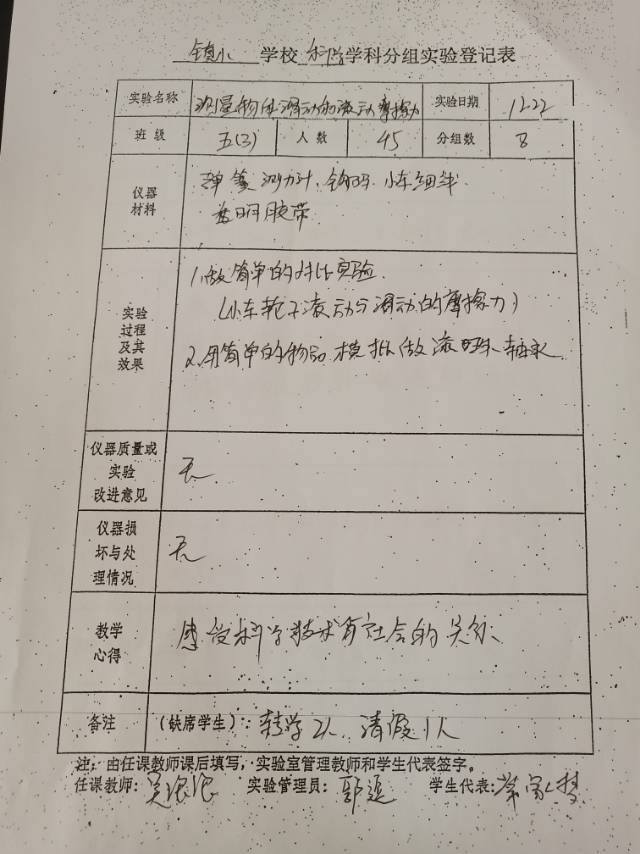 镇小 学校 科学 学科分组实验登记表
实验名称 测量物体滑动和滚动摩擦力 实验日期 12.22
班级 五(3) 人数 45 分组数 8
仪器材料 弹簧测力计、钩码、小车细线
透明胶带
实验过程及其效果 1.做简单的对比实验.
(小车轮子滚动与滑动的摩擦力)
2.用简单的物品模拟做滚珠轴承
仪器质量或实验改进意见 无
仪器损坏与处理情况 无
教学心得 感受科学技术与社会的关系
备注 (缺席学生): 转学2人 请假1人
注: 由任课教师课后填写,实验室管理教师和学生代表签字。
任课教师: 吴 实验管理员: 郭 学生代表: